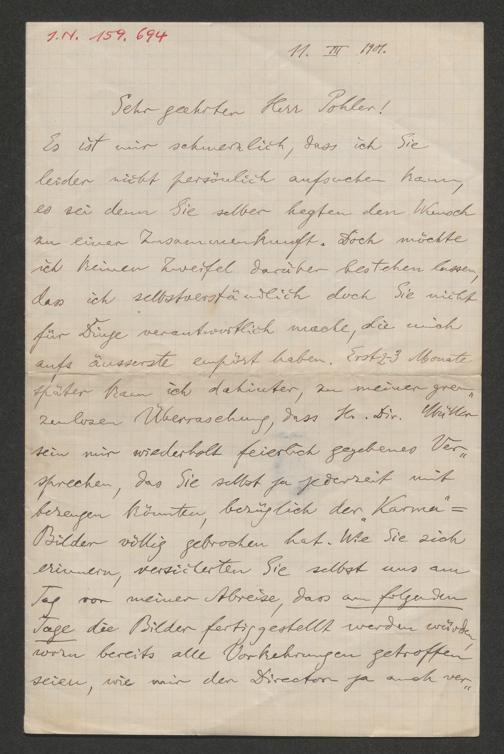 J.N. 159.694
11. III 1901.
Sehr geehrter Herr Pohler!
Es ist mir schmerzlich, dass ich Sie
leider nicht persönlich aufsuchen kann,
es sei denn Sie selber hegten den Wunsch
zu einer Zusammenkunft. Doch möchte
ich keinen Zweifel darüber bestehen lassen,
dass ich selbstverständlich doch Sie nicht
für Dinge verantwortlich mache, die mich
aufs äusserste empört haben. Erst 2-3 Monate
später kam ich dahinter, zu meiner gren„
zenlosen Überraschung, dass H. Dir. Müller
sein mir wiederholt feierlich gegebenes Ver„
sprechen, das Sie selbst ja jederzeit mit
bezeugen könnten, bezüglich der „Karma"=
Bilder völlig gebrochen hat. Wie Sie sich
erinnern, versicherten Sie selbst uns am
Tag vor meiner Abreise, dass am folgenden
Tage die Bilder fertiggestellt werden würden,
wozu bereits alle Vorkehrungen getroffen
seien, wie mir der Director ja auch ver„